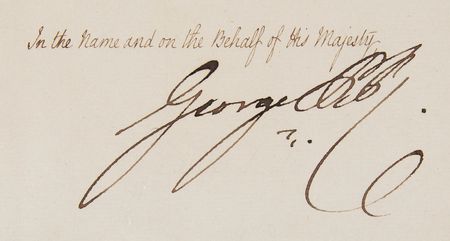 In the Name and on the Behalf of His Majesty,
George P R.